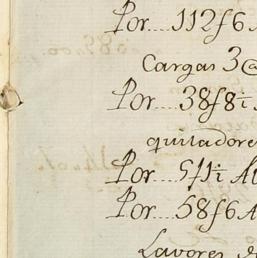 Por.... 112f6
Cargas 3@
Por.... 38f8i
quitadore
Por.... 511i Al
Por.... 58f6 A
Lavores